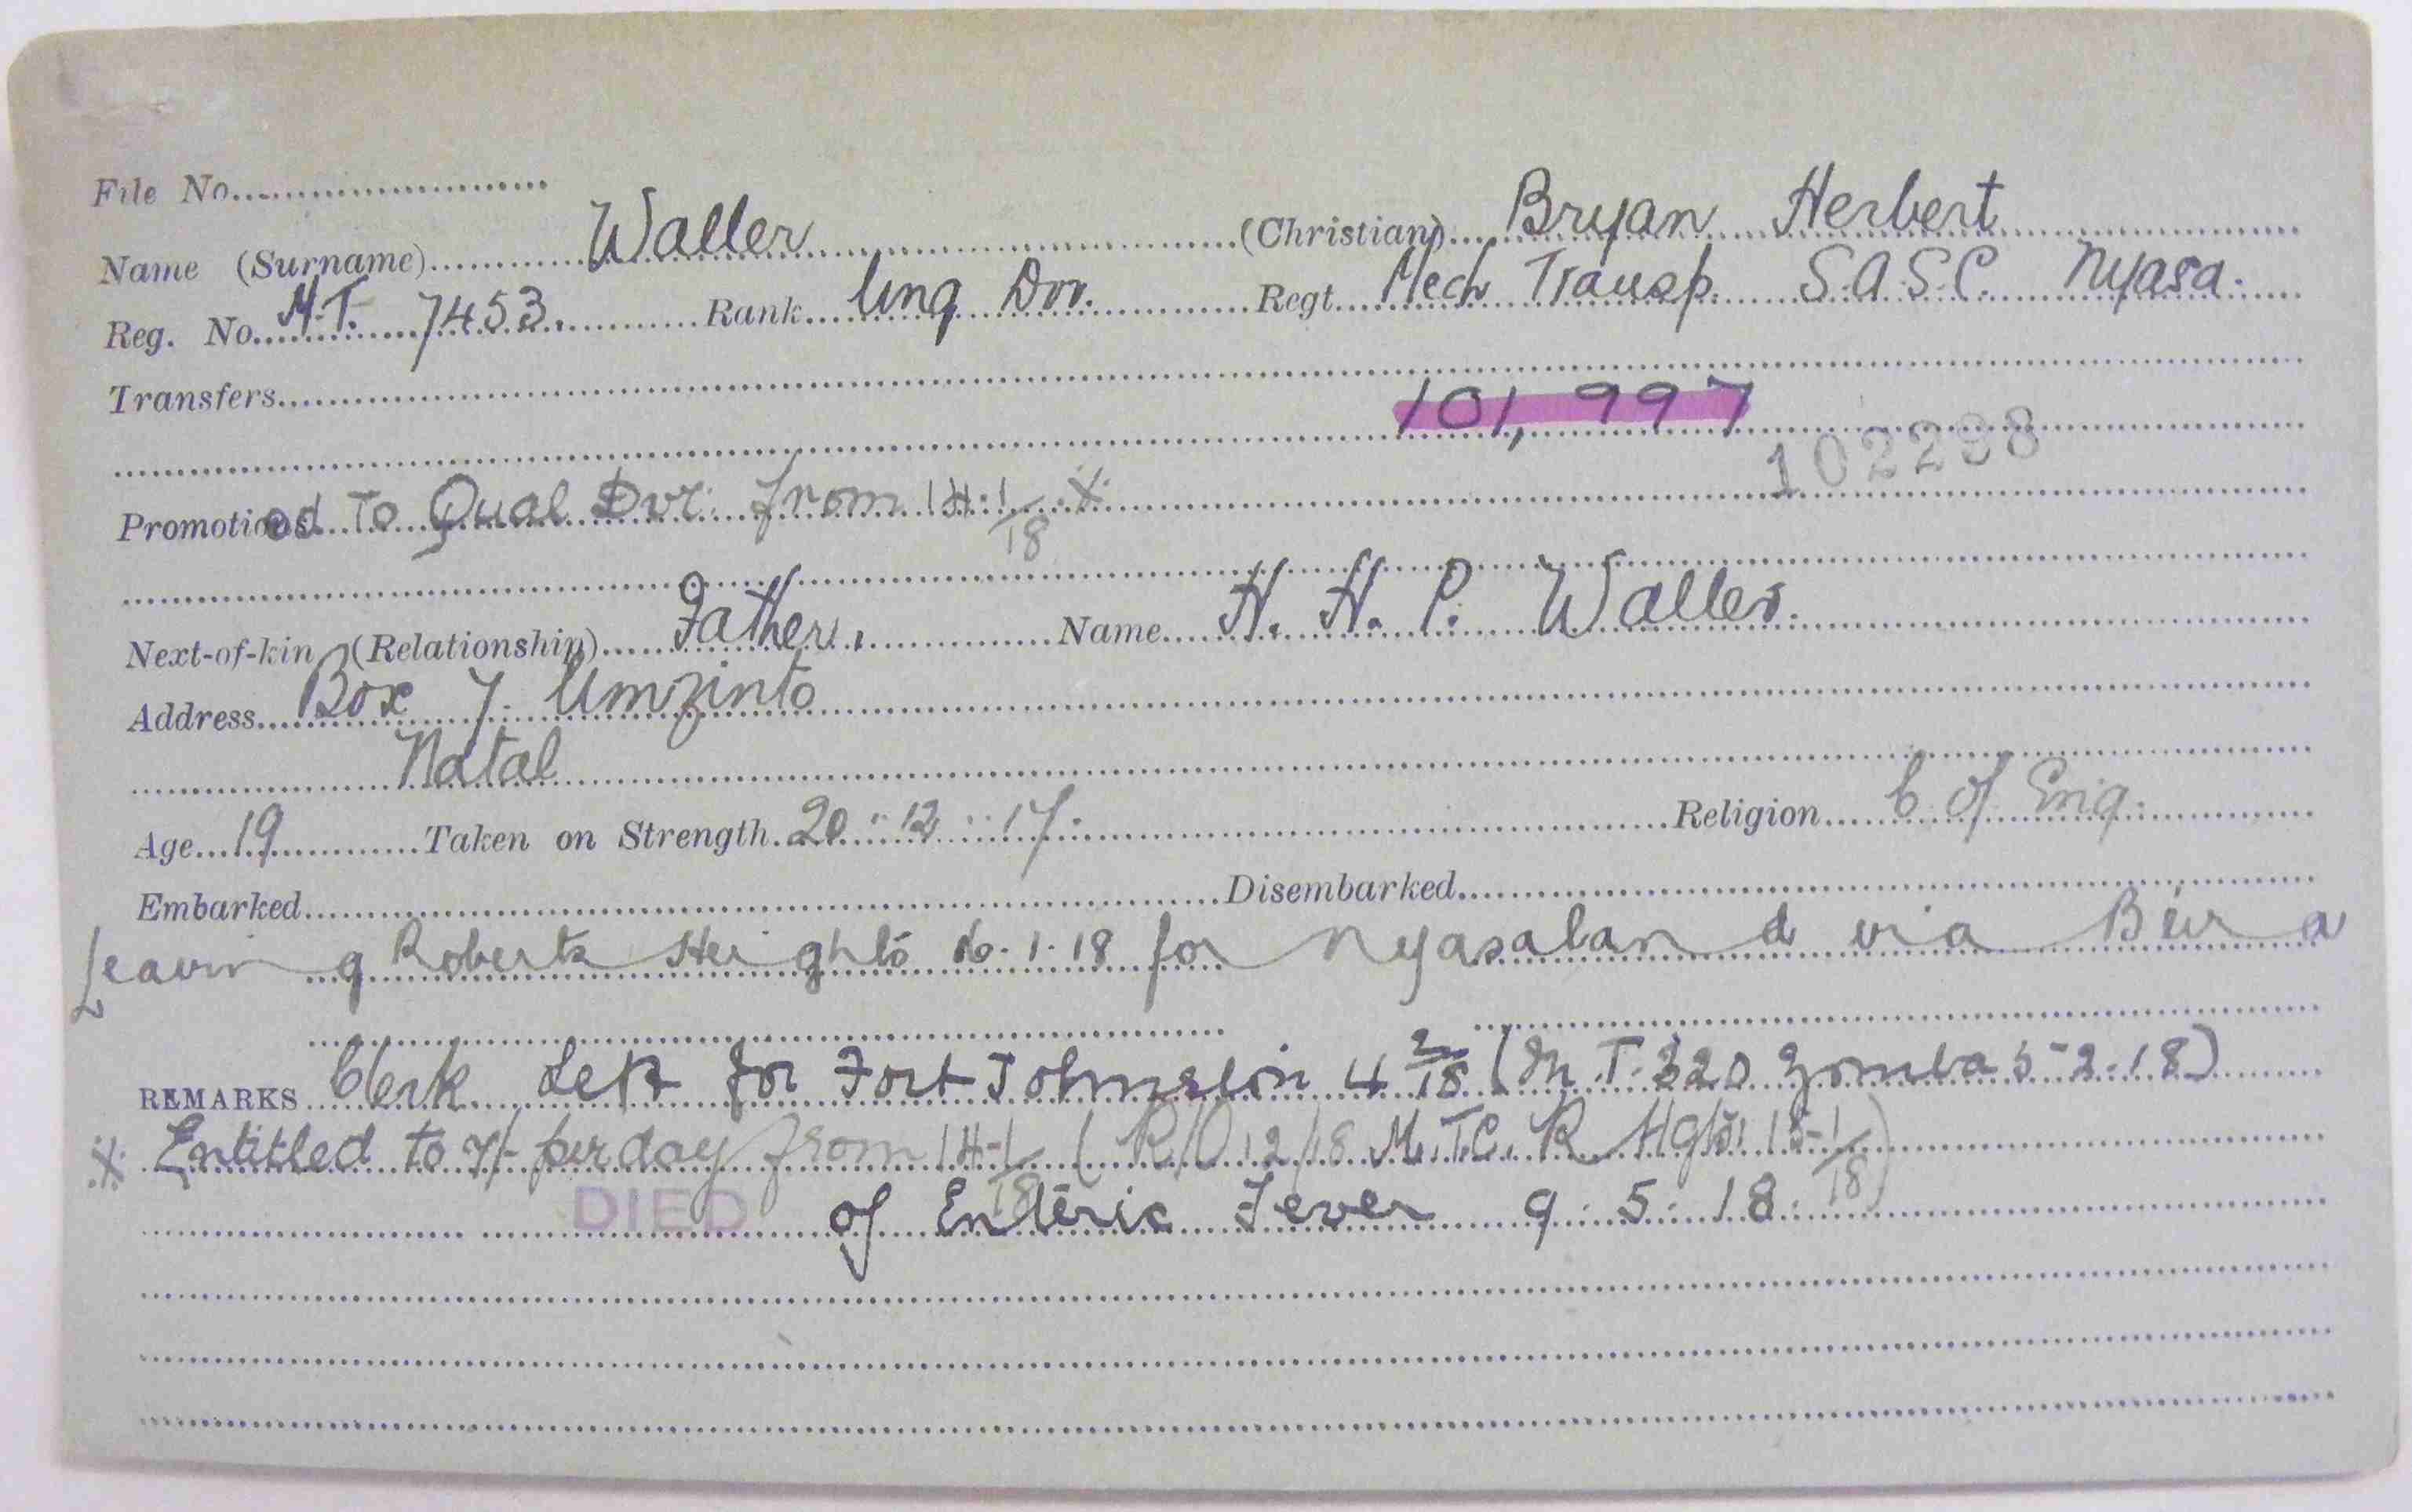 File No.
Name (Surname) Waller (Christian) Bryan Herbert
Reg. No. M.T. 7453. Rank Unq Dvr. Regt. Mech Transp. S.A.S.C. Nyasa.
Transfers
101,997
102298
Promotioned To Qual Dvr. from 14.1/18 ※
Next-of-kin (Relationship) Father. Name H. H. P. Waller.
Address Box 7. Umzinto
Natal
Age 19 Taken on Strength 20-12-17. Religion C of Eng.
Embarked Disembarked
Leaving Roberts Heights 16.1.18 for Nyasaland via Beira
REMARKS Clerk Left for Fort Johnston 4 2/18 (M.T. 320 Zomba 5-2-18)
※ Entitled to 7/- per day from 14-1/18 (R/O 12/18 M.T.C. R Hghts 15-1/18)
DIED of Enteric Fever 9.5.18.